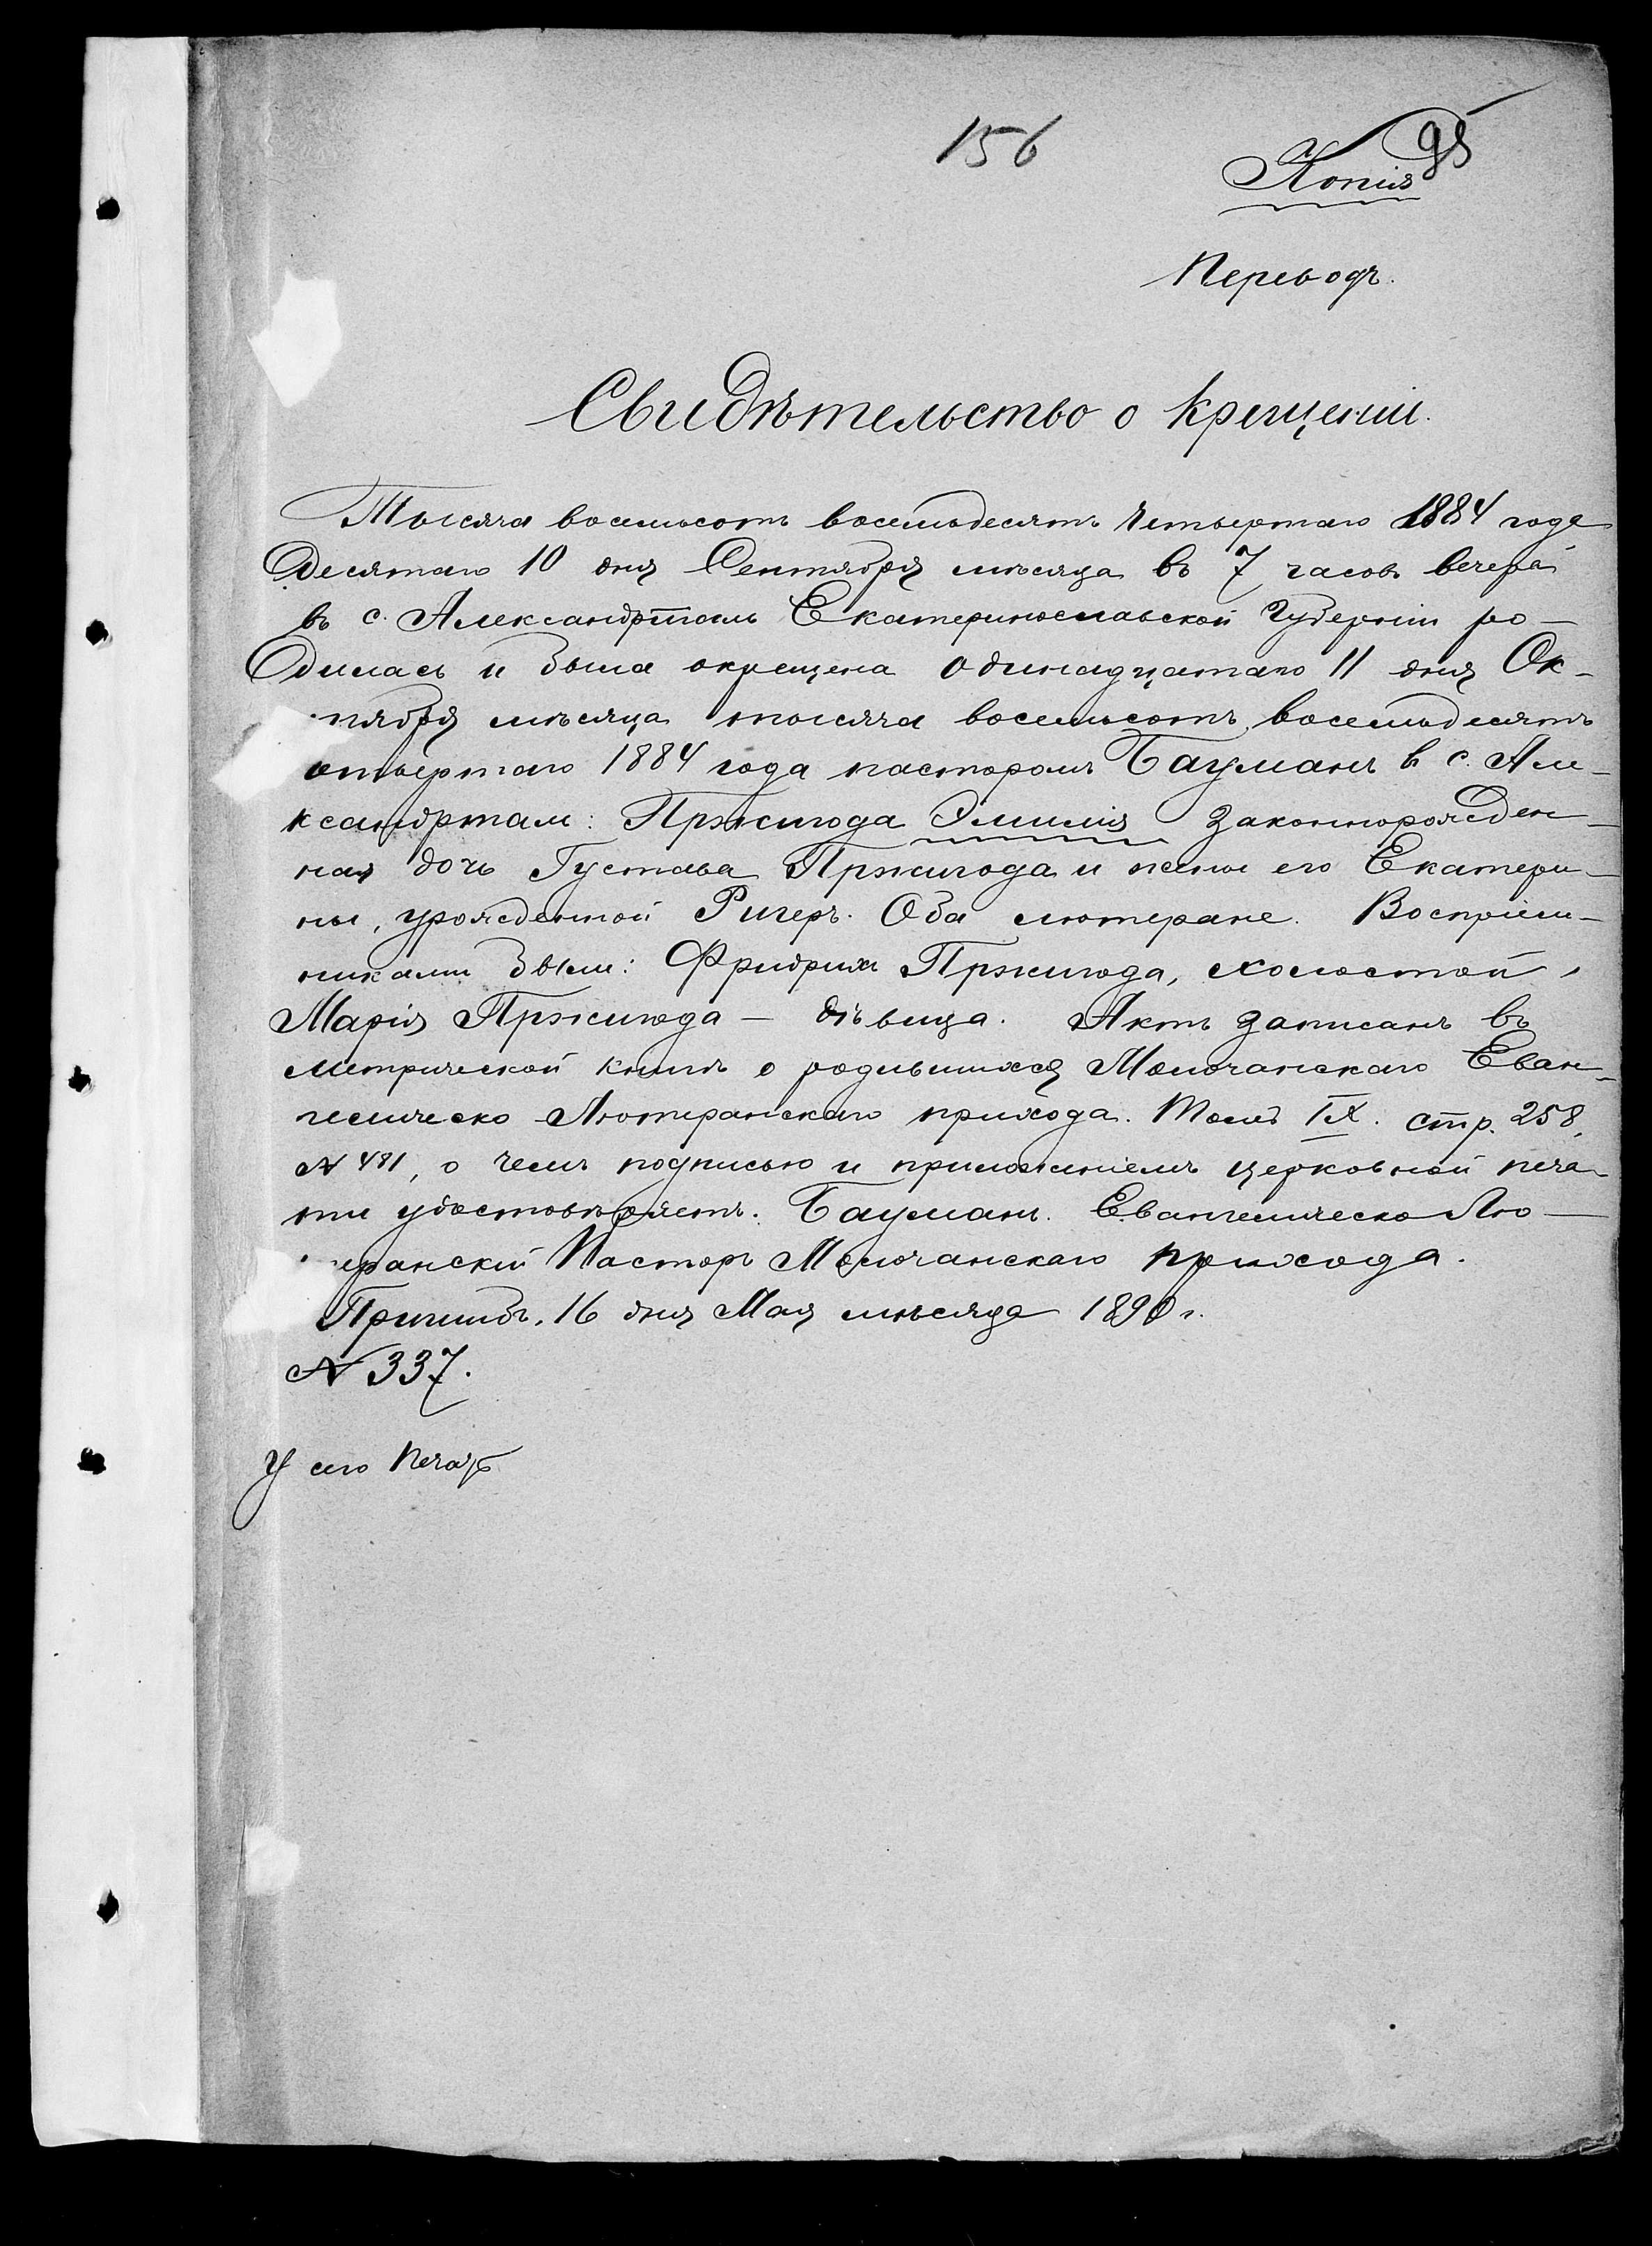 156
98
Копія
Переводъ.
Свидѣтельство о крещеніи.
Тысяча восемьсотъ восемьдесятъ четвертаго 1884 года
Десятаго 10 дня Сентября мѣсяца въ 7 часовъ вечера
въ с. Александрталь Екатеринославской Губерніи ро-
дилась и была окрещена одинадцатаго 11 дня Ок-
тября мѣсяца тысяча восемьсотъ восемьдесятъ
етвертаго 1884 года пасторомъ Бауманъ в с. Але-
ксандртал: Пржигода Эмилія законнорожден-
ная дочь Густава Пржигода и жены его Екатери-
ны, урожденной Ригеръ. Оба лютеране. Воспріем-
никами были: Фридрих Пржигода, холостой,
Марія Пржигода - дѣвица. Актъ записанъ въ
метрической книгѣ о родившихся Молочанскаго Еван-
гелическо Лютеранскаго прихода. Томъ IX. стр. 258,
№ 481, о чемъ подписью и приложеніемъ церковной печа-
ти удостовѣряетъ. Бауманъ. Евангелическо Лю-
еранскій Пасторъ Молочанскаго прихода.
Пришибъ, 16 дня Мая мѣсяца 1890 г.
№ 337.
У сего печать